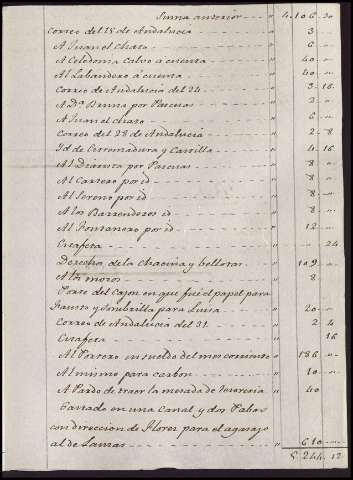 Suma anterior - - - " 4.106 - 30
Correo del 18 de Andalucia - - - " 3 -
A Juan el chato - - - " 6 -
A Celedonia Calvo á cuenta - - - " 40 -
Al Labandero á cuenta - - - " 40 -
Correo de Andalucia del 24 - - - " 3 - 16
A Dª Bruna por Pascuas - - - " 2 -
A Juan el chato - - - " 6 -
Correo del 28 de Andalucia - - - " 2 - 8
Id de Estremadura y Castilla - - - " 4 - 16
Al Diarista por Pascuas - - - " 8 -
Al Cartero por id - - - " 8 -
Al Sereno por id - - - " 8 -
A los Barrenderos id - - - " 8 -
Al Fontanero por id - - - " 12 -
Estafeta - - - " 24
Derechos de la chacina y bellotas - " 109 -
A los mozos - - - " 8 -
Porte del Cajon en que fué el papel para
Fausto y Sombrilla para Luisa - - - " 20 -
Correo de Andalucia del 31 - - - " 2 4
Estafeta - - - " 16
Al Portero su sueldo del mes corriente " 186 -
Al mismo para carbon - - - " 10 -
A Pardo de traer la mesada de Tesoreria " 40
Gastado en una Canal y dos Pabos
con direccion de Flores para el agasajo
al de Lanzas - - - 610 -
5.244 12